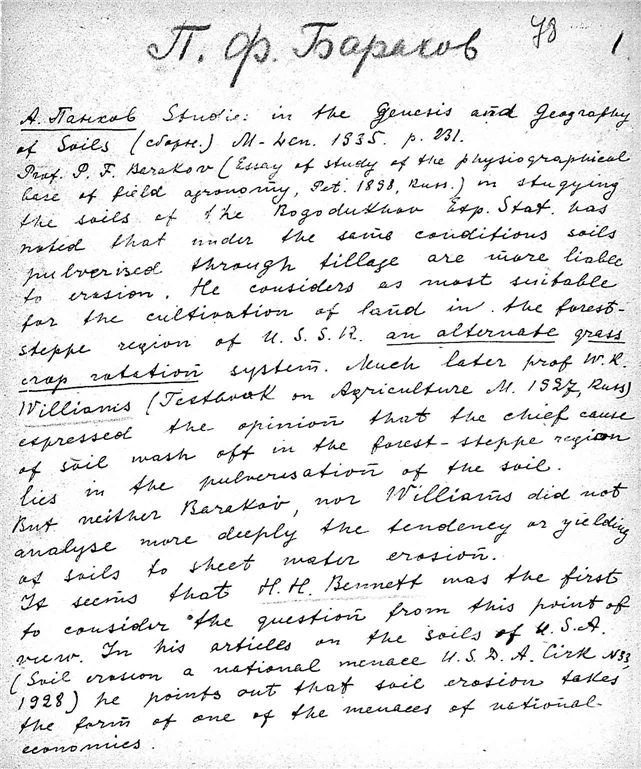 П. Ф. Бараков
78
1
А. Панков Studies in the Genesis and Geography
of Soils (сборн.) М-Лен. 1935. p. 231.
Prof. P. F. Barakov (Essay of study of the physiographical
base of field agronomy, Pet. 1898, Russ.) on studying
the soils of the Bogodukhov Exp. Stat. has
noted that under the same conditions soils
pulverized through tillage are more liable
to erosion. He considers as most suitable
for the cultivation of land in the forest-
steppe region of U.S.S.R. an alternate grass
crop rotation system. Much later prof W. R.
Williams (Textbook on Agriculture M. 1927, Russ)
expressed the opinion that the chief cause
of soil wash off in the forest-steppe region
lies in the pulverisation of the soil.
But neither Barakov, nor Williams did not
analyse more deeply the tendency or yielding
of soils to sheet water erosion.
It seems that H. H. Bennett was the first
to consider the question from this point of
view. In his articles on the soils of U.S.A.
(Soil erosion a national menace U.S.D.A. Cirk N33
1928) he points out that soil erosion takes
the form of one of the menaces of national
economics.